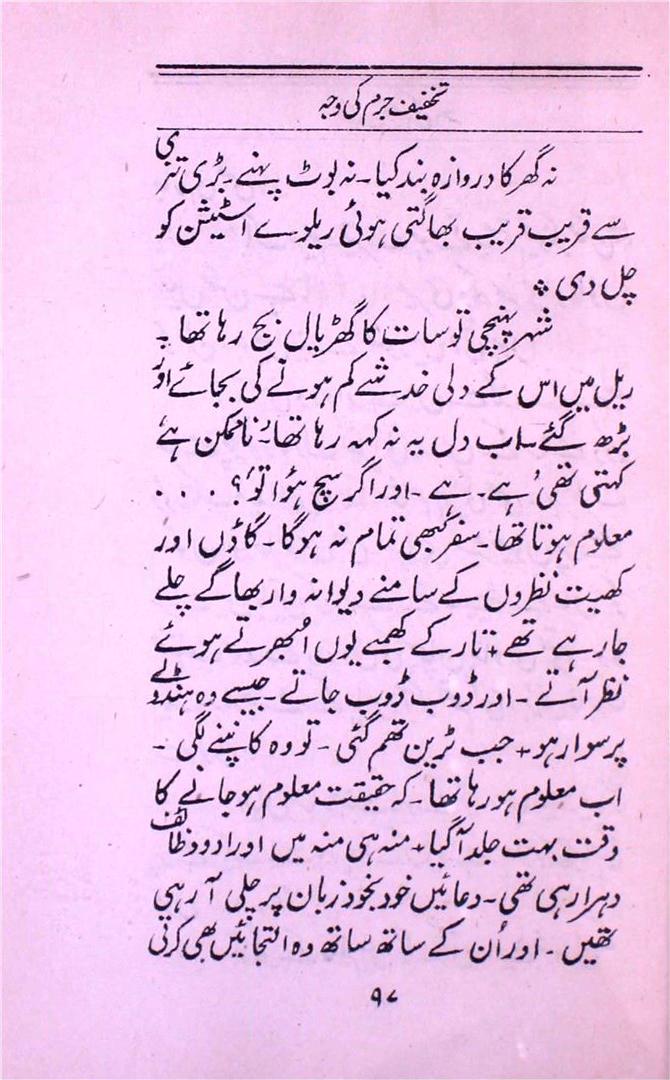 تخفیف جرم کی وجہ
نہ گھر کا دروازہ بند کیا۔ نہ بوٹ پہنے۔ بڑی تیزی
سے قریب قریب بھاگتی ہوئی ریلوے اسٹیشن کو
چل دی ٭
شہر پہنچی تو سات کا گھڑیال بج رہا تھا ۔
ریل میں اس کے دلی خدشے کم ہونے کی بجائے اور
بڑھ گئے۔ اب دل یہ نہ کہہ رہا تھا ”ناممکن ہے“
کہتی تھی ’ہے۔ ہے ۔ اور اگر سچ ہؤا تو‘؟ . . .
معلوم ہوتا تھا۔ سفر کبھی تمام نہ ہوگا۔ گاؤں اور
کھیت نظروں کے سامنے دیوانہ وار بھاگے چلے
جا رہے تھے + تار کے کھمبے یوں اُبھرتے ہوئے
نظر آتے ۔ اور ڈوب ڈوب جاتے ۔ جیسے وہ ہنڈولے
پر سوار ہو + جب ٹرین تھم گئی ۔ تو وہ کانپنے لگی ۔
اب معلوم ہو رہا تھا۔ کہ حقیقت معلوم ہو جانے کا
وقت بہت جلد آ گیا + منہ ہی منہ میں اوراد و وظائف
دہرا رہی تھی۔ دعائیں خود بخود زبان پر چلی آ رہی
تھیں ۔ اور اُن کے ساتھ ساتھ وہ التجائیں بھی کرتی
۹۷